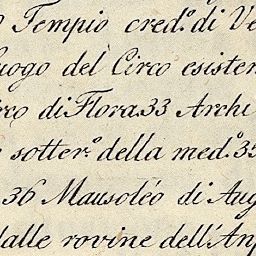 Tempio cred.º di Ve
uogo del Circo esisten
rco di Flora 33 Archi
sotter.º della med.º 35
36 Mausoléo di Aug
dalle rovine dell'Anf